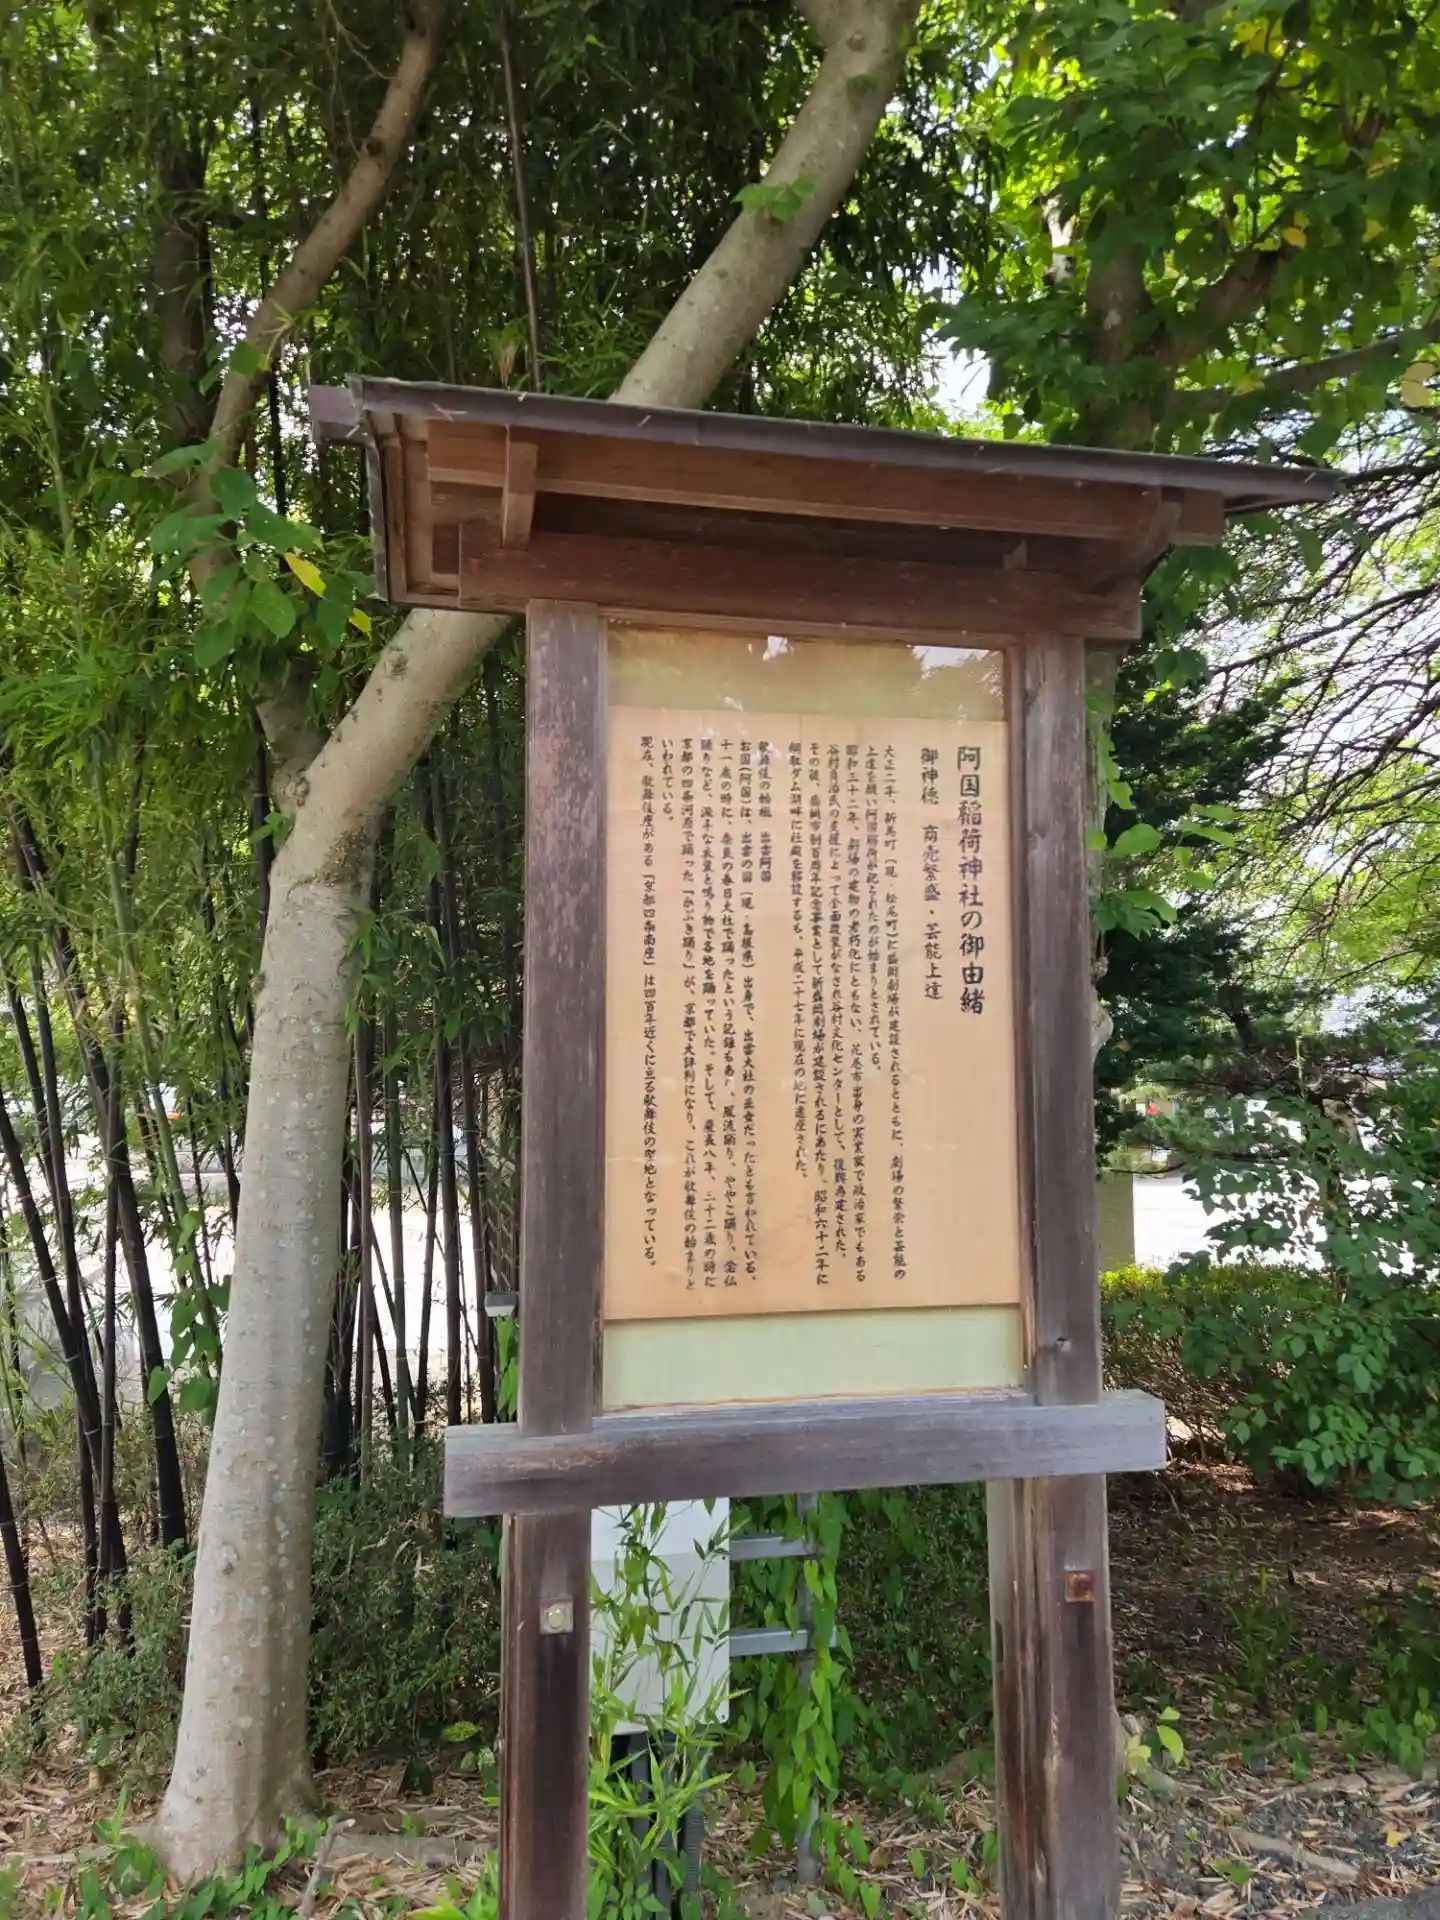 阿国稲荷神社の御由緒
御神徳 商売繁盛・芸能上達
大正二年、新馬町（現・松尾町）に盛岡劇場が建設されるとともに、劇場の繁栄と芸能の
上達を願い阿国稲荷が祀られたのが始まりとされている。
昭和三十二年、劇場の建物の老朽化にともない、花巻市出身の実業家で政治家でもある
谷村貞治氏の支援によって全面改装がなされ谷村文化センターとして、復興再建された。
その後、盛岡市制百周年記念事業として新盛岡劇場が建設されるにあたり、昭和六十二年に
綱取ダム湖畔に社殿を移設するも、平成二十七年に現在の地に遷座された。
歌舞伎の始祖 出雲阿国
お国（阿国）は、出雲の国（現・島根県）出身で、出雲大社の巫女だったとも言われている。
十一歳の時に、奈良の春日大社で踊ったという記録もあり、風流踊り、ややこ踊り、念仏
踊りなど、派手な衣裳と鳴り物で各地を踊っていた。そして、慶長八年、三十二歳の時に
京都の四条河原で踊った「かぶき踊り」が、京都で大評判になり、これが歌舞伎の始まりと
いわれている。
現在、歌舞伎座がある「京都四条南座」は四百年近くに亘る歌舞伎の聖地となっている。